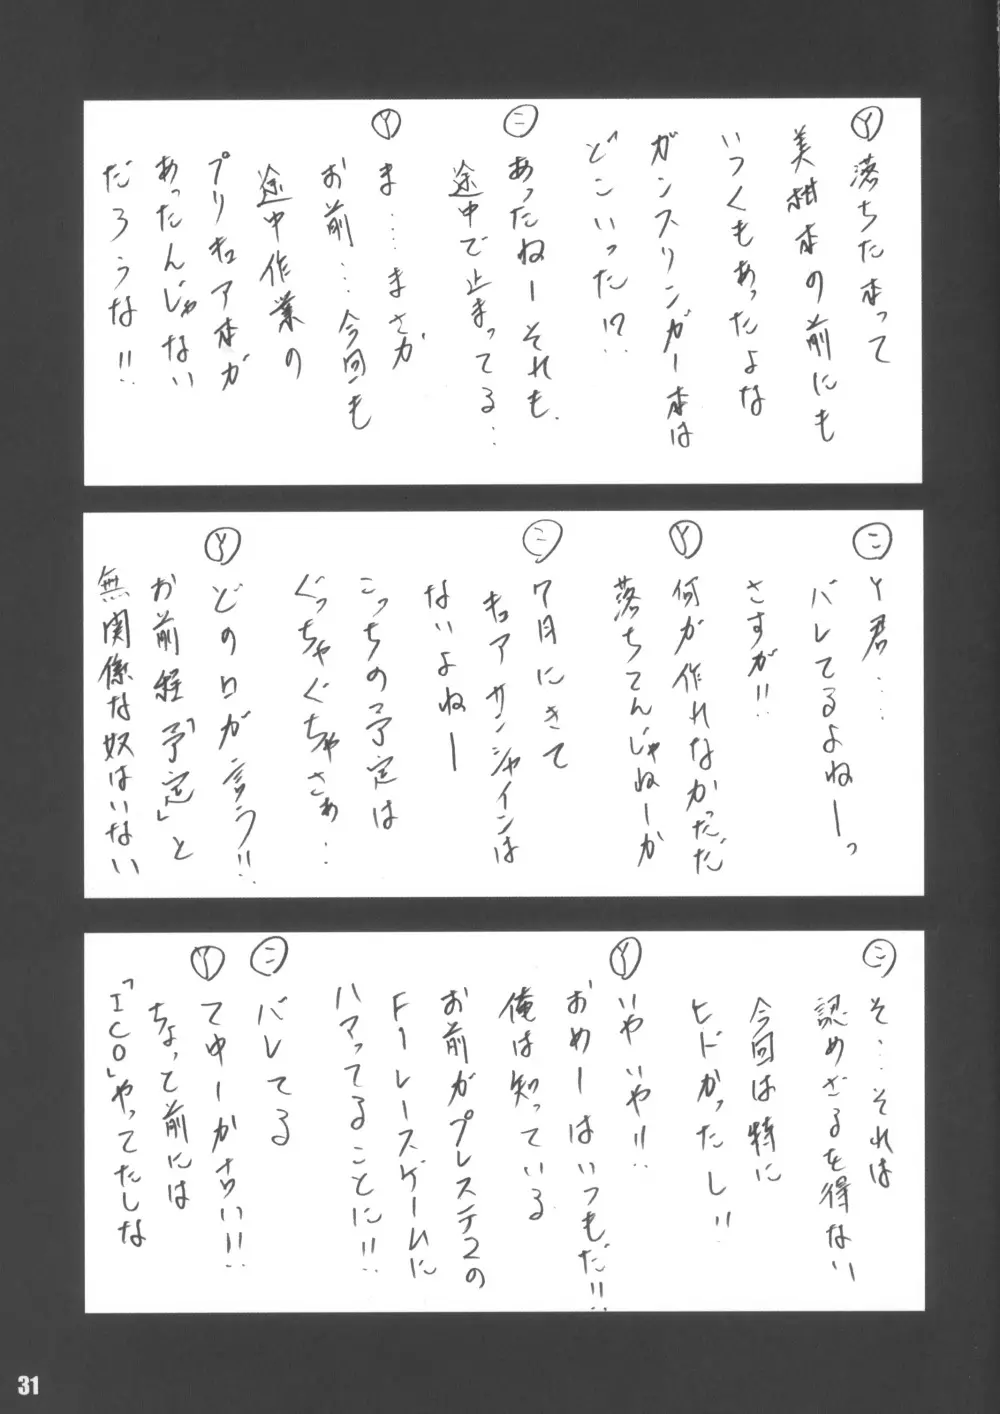 Ⓨ落ちた本って
美柑本の前にも
いつくもあったよな
ガンスリンガー本は
どこいった!?
㋥あったねーそれも
途中で止まってる…
Ⓨま…まさか
お前…今回も
途中作業の
プリキュア本が
あったんじゃない
だろうな!!
㋥Y君……
バレてるよねーっ
さすが!!
Ⓨ何が作れなかっただ
落ちてんじゃねーか
㋥7月にきて
キュアサンシャインは
ないよねー
こっちの予定は
ぐっちゃぐちゃさぁ…
Ⓨどの口が言う!!
お前程「予定」と
無関係な奴はいない
㋥そ…それは
認めざるを得ない
今回は特に
ヒドかったし!!
Ⓨいやいや!!
おめーはいつもだ!!
俺は知っている
お前がプレステ2の
F1レースゲームに
ハマってることに!!
㋥バレてる
Ⓨて ゆーか古い!!
ちょって前には
「ICO」やってたしな
31